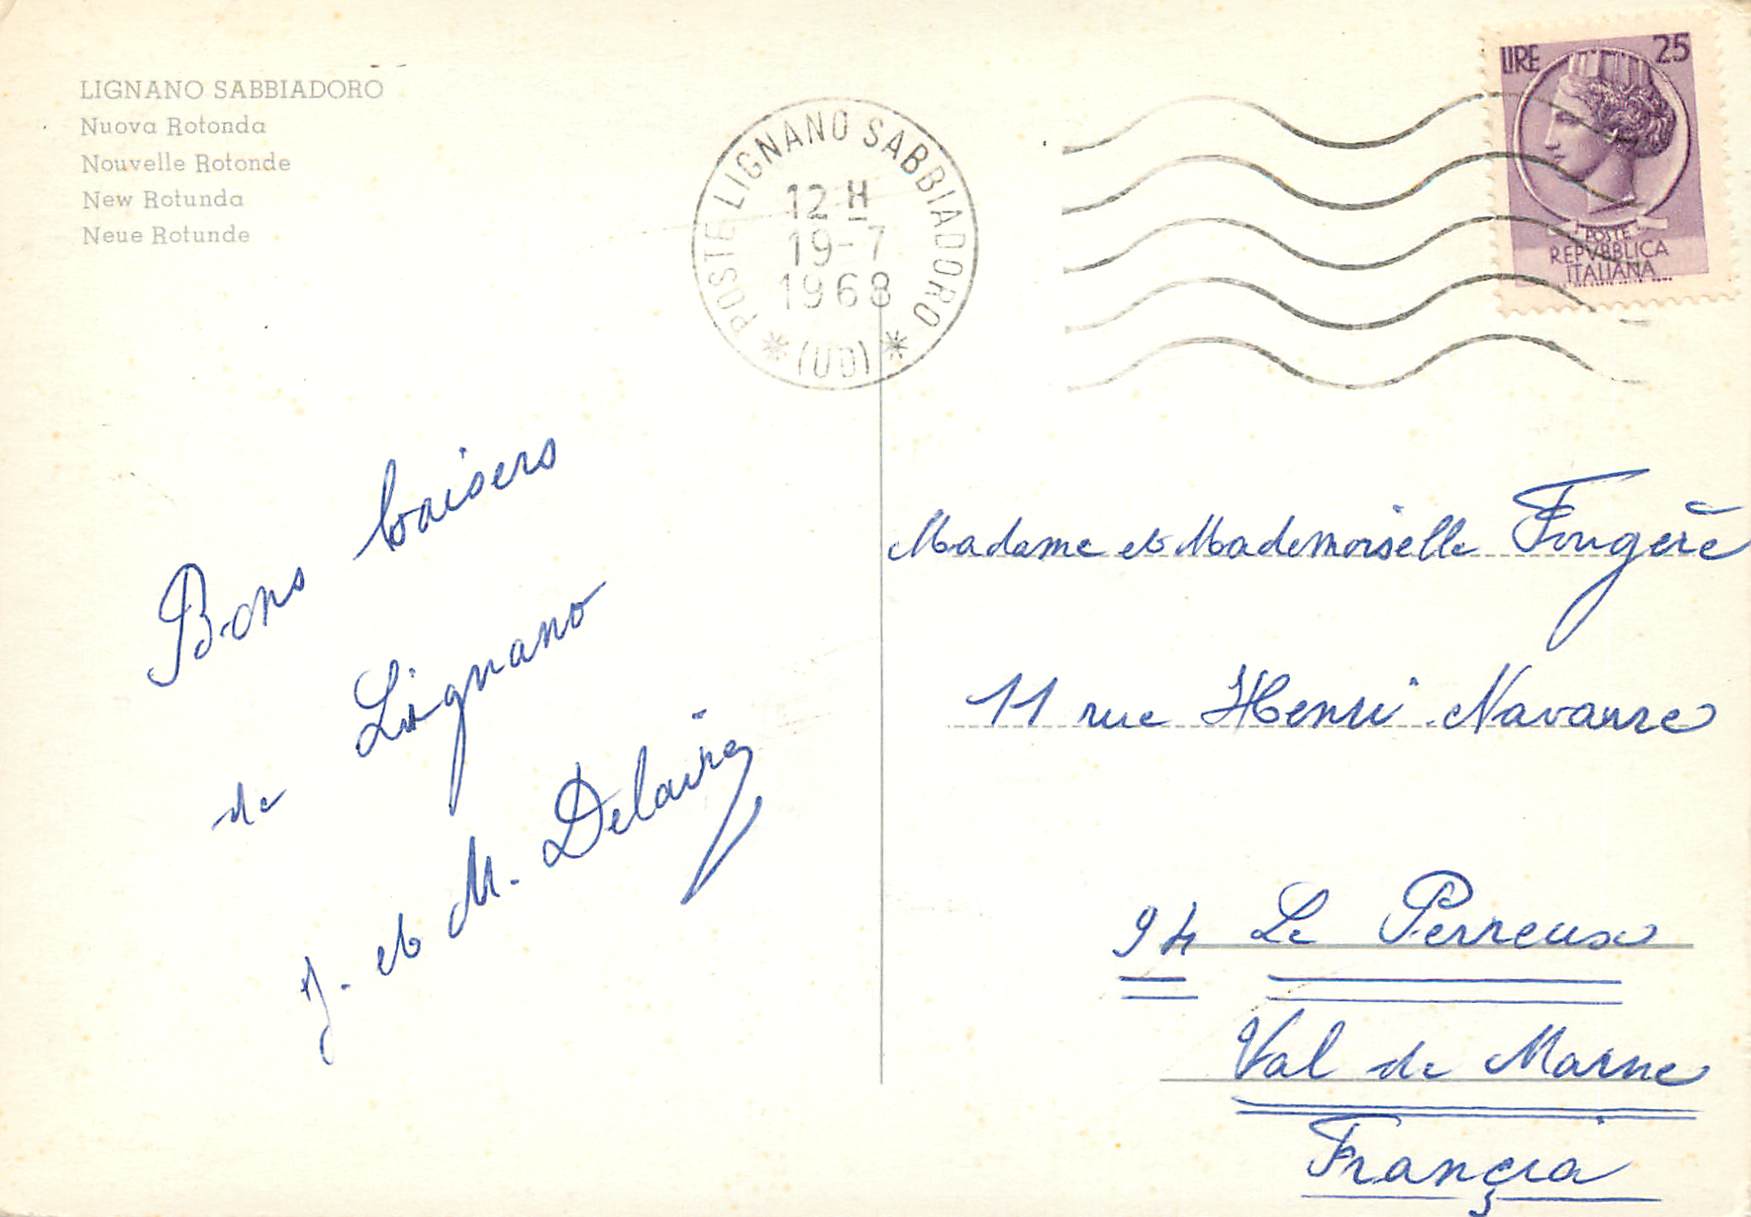 LIGNANO SABBIADORO
Nuova Rotonda
Nouvelle Rotonde
New Rotunda
Neue Rotunde
POSTE LIGNANO SABBIADORO
12 H
19-7
1968
* (UD) *
LIRE 25
POSTE
REPVBBLICA
ITALIANA
Bons baisers
de Lignano
J. et M. Delaire
Madame et Mademoiselle Fougère
11 rue Henri Navarre
94 Le Perreux
Val de Marne
Françia